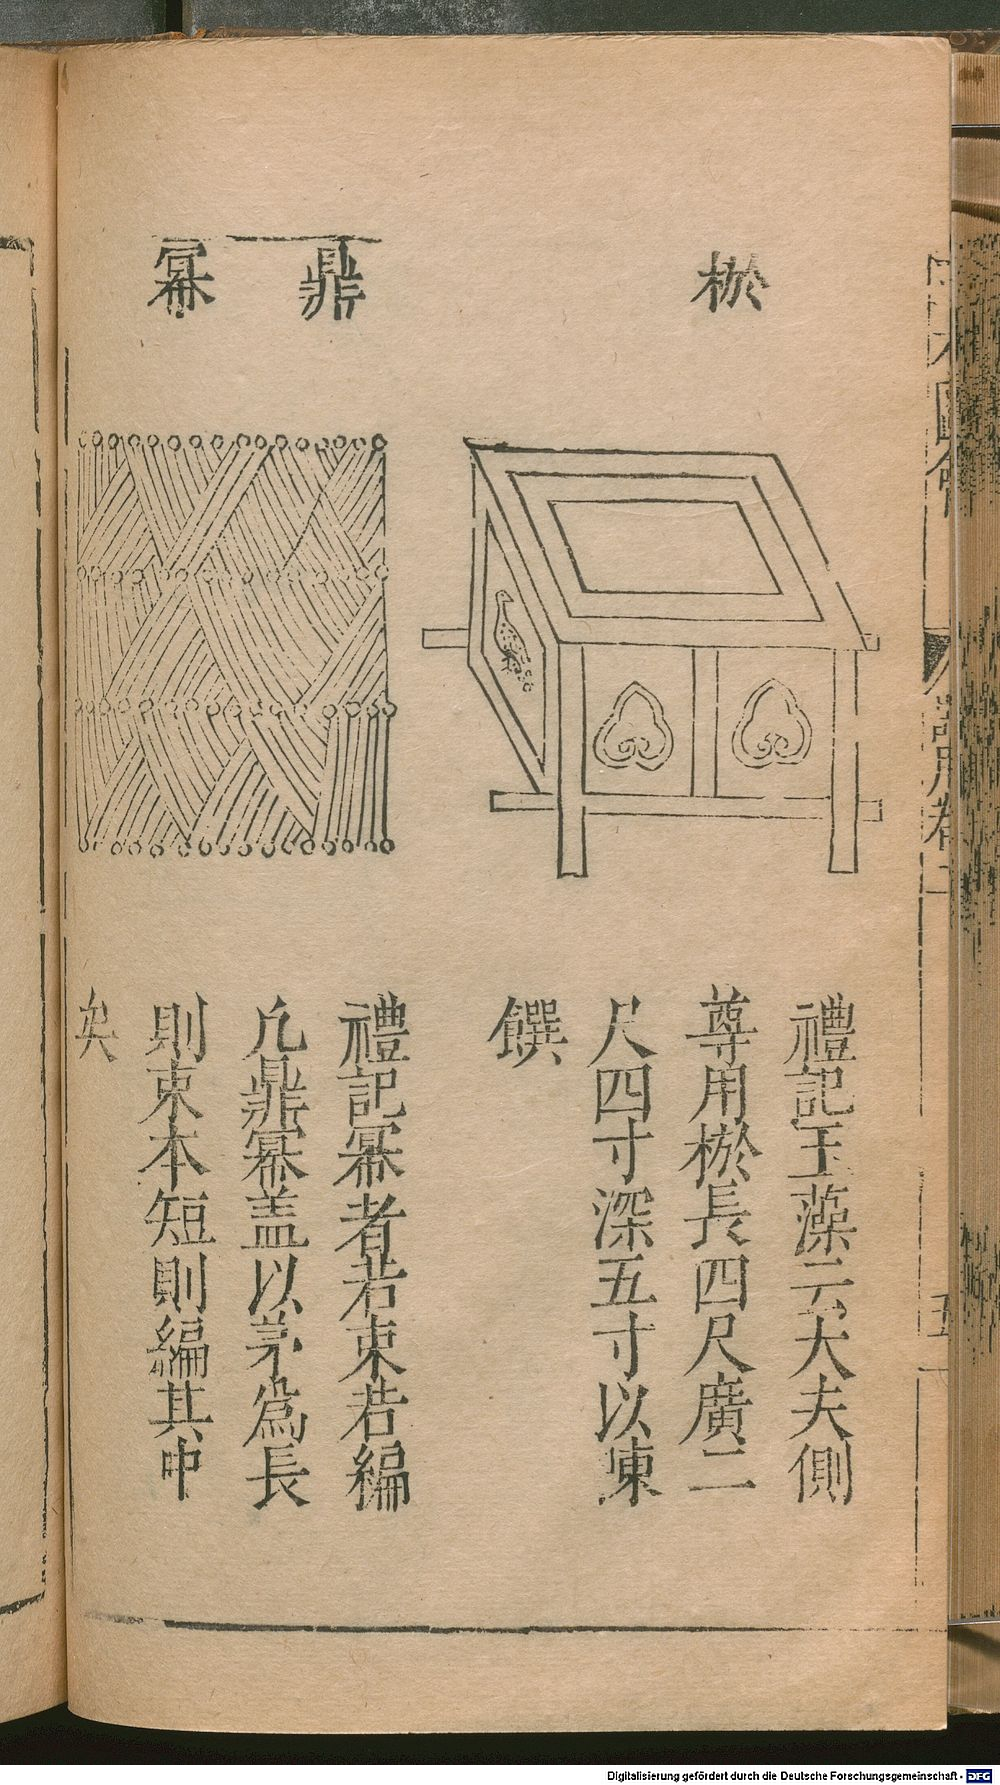 棜
禮記玉藻云大夫側
尊用棜長四尺廣二
尺四寸深五寸以陳
饌
鼎冪
禮記冪者若束若編
凢鼎冪盖以茅爲長
則束本短則編其中
矣
才圖會
器用卷
Digitalisierung gefördert durch die Deutsche Forschungsgemeinschaft - DFG